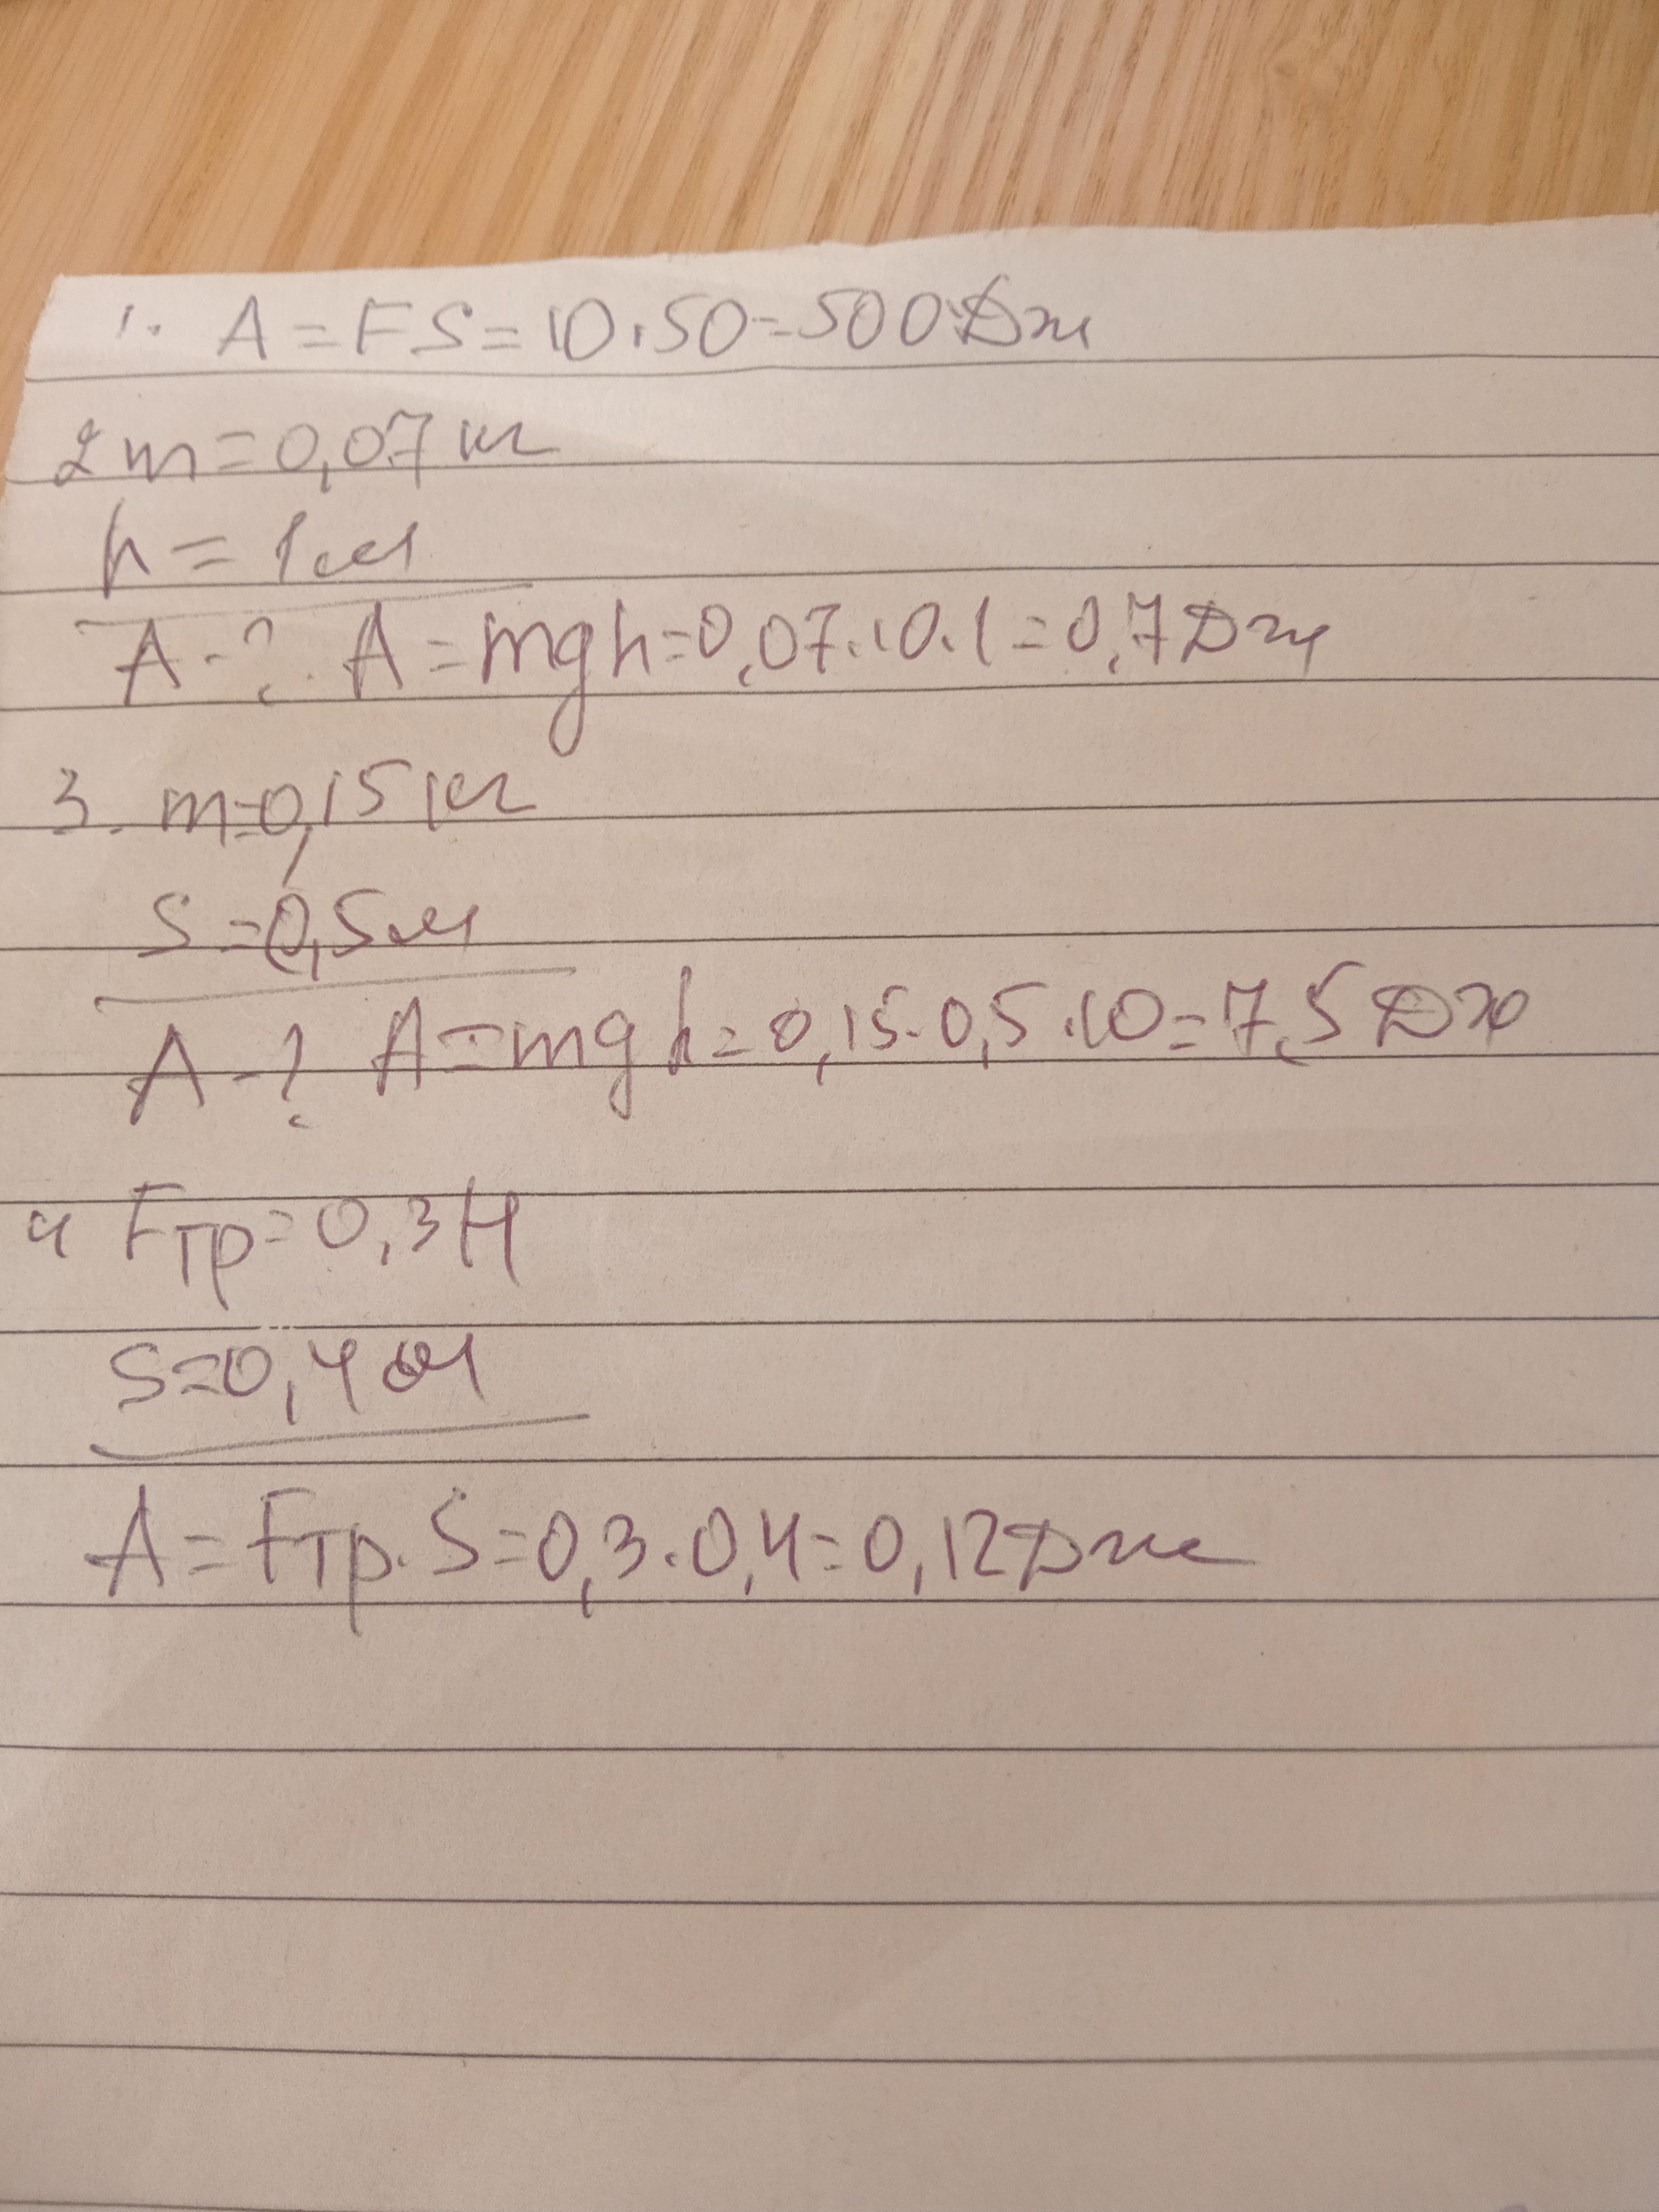 1. A = FS = 10·50 = 500 Дж
2 m = 0,07 кг
h = 1 м
A - ? A = mgh = 0,07·10·1 = 0,7 Дж
3. m = 0,15 кг
S = 0,5 м
A - ? A = mgh = 0,15·0,5·10 = 7,5 Дж
4 Fтр = 0,3 Н
S = 0,4 м
A = Fтр·S = 0,3·0,4 = 0,12 Дж